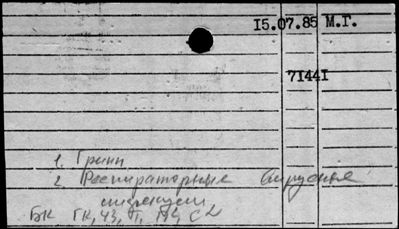 15.07.85 М.Г.
71441
1. Грипп
2. Респираторные вирусные
инфекции
БК ГК, ЧЗ,